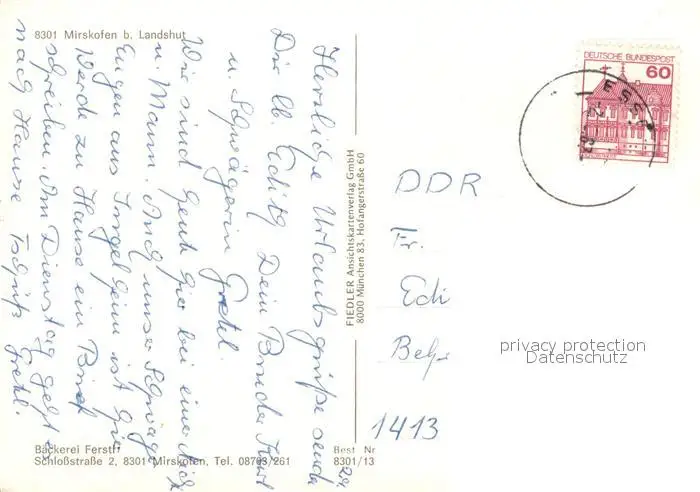 8301 Mirskofen b. Landshut
Herzliche Urlaubsgrüße sendet
Dir lb. Edith Dein Bruder Kurt
u. Schwägerin Gretel.
Wir sind heute hier bei einer Nichte
u. Mann. Auch unser Schwager
Eugen aus Ingelheim ist hier
Werde zu Hause ein Brief
schreiben. Am Dienstag geht es
nach Hause Tschüß Gretel.
Bäckerei Ferstl
Schloßstraße 2, 8301 Mirskofen, Tel. 08703/261
FIEDLER Ansichtskartenverlag GmbH
8000 München 83, Hofangerstraße 60
Best Nr
8301/13
DEUTSCHE BUNDESPOST
60
DDR
Fr.
Edi
1413
privacy protection
Datenschutz